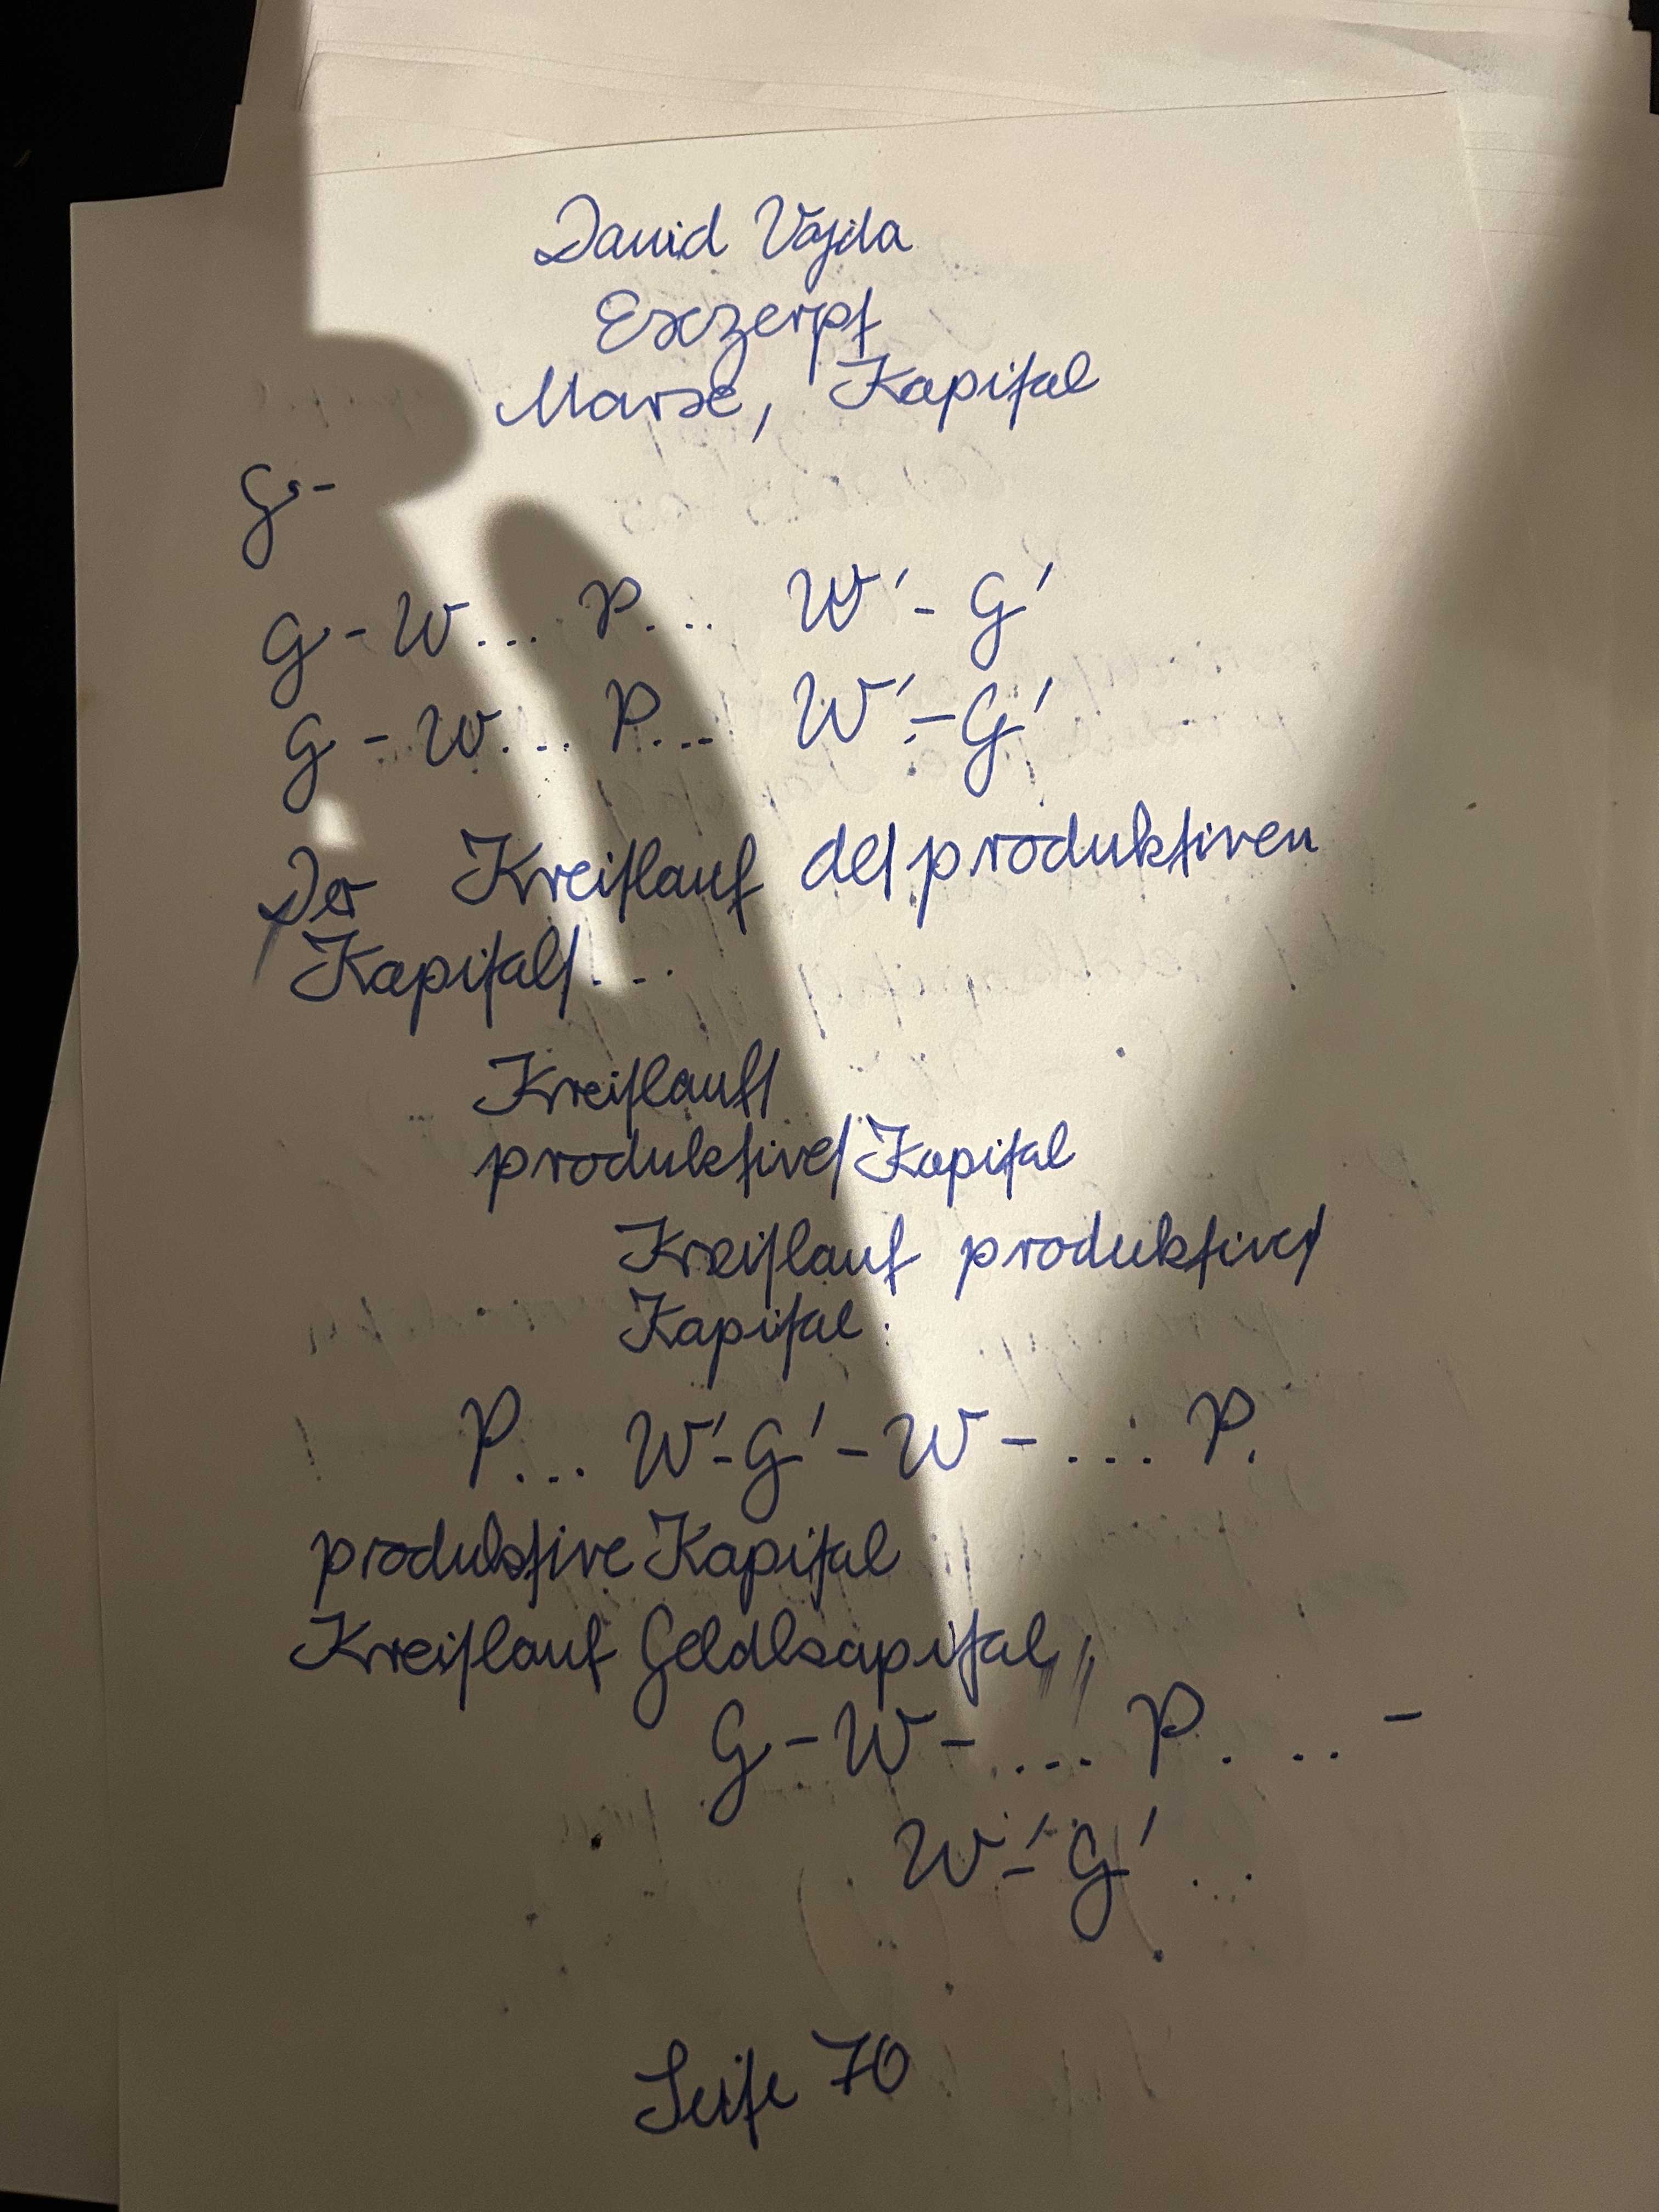 David Vajda
Exzerpt
Marx, Kapital
G-
G-W... P... W'-G'
G-W... P... W'-G'
Der Kreiſlauf deſ produktiven
Kapitalſ...
Kreiſlaufſ
produktiveſ Kapital
Kreiſlauf produktiveſ
Kapital:
P... W'-G'-W-... P.
produktive Kapital
Kreiſlauf Geldkapital,
G-W-.... P. .. -
W'-G'...
Seite 70